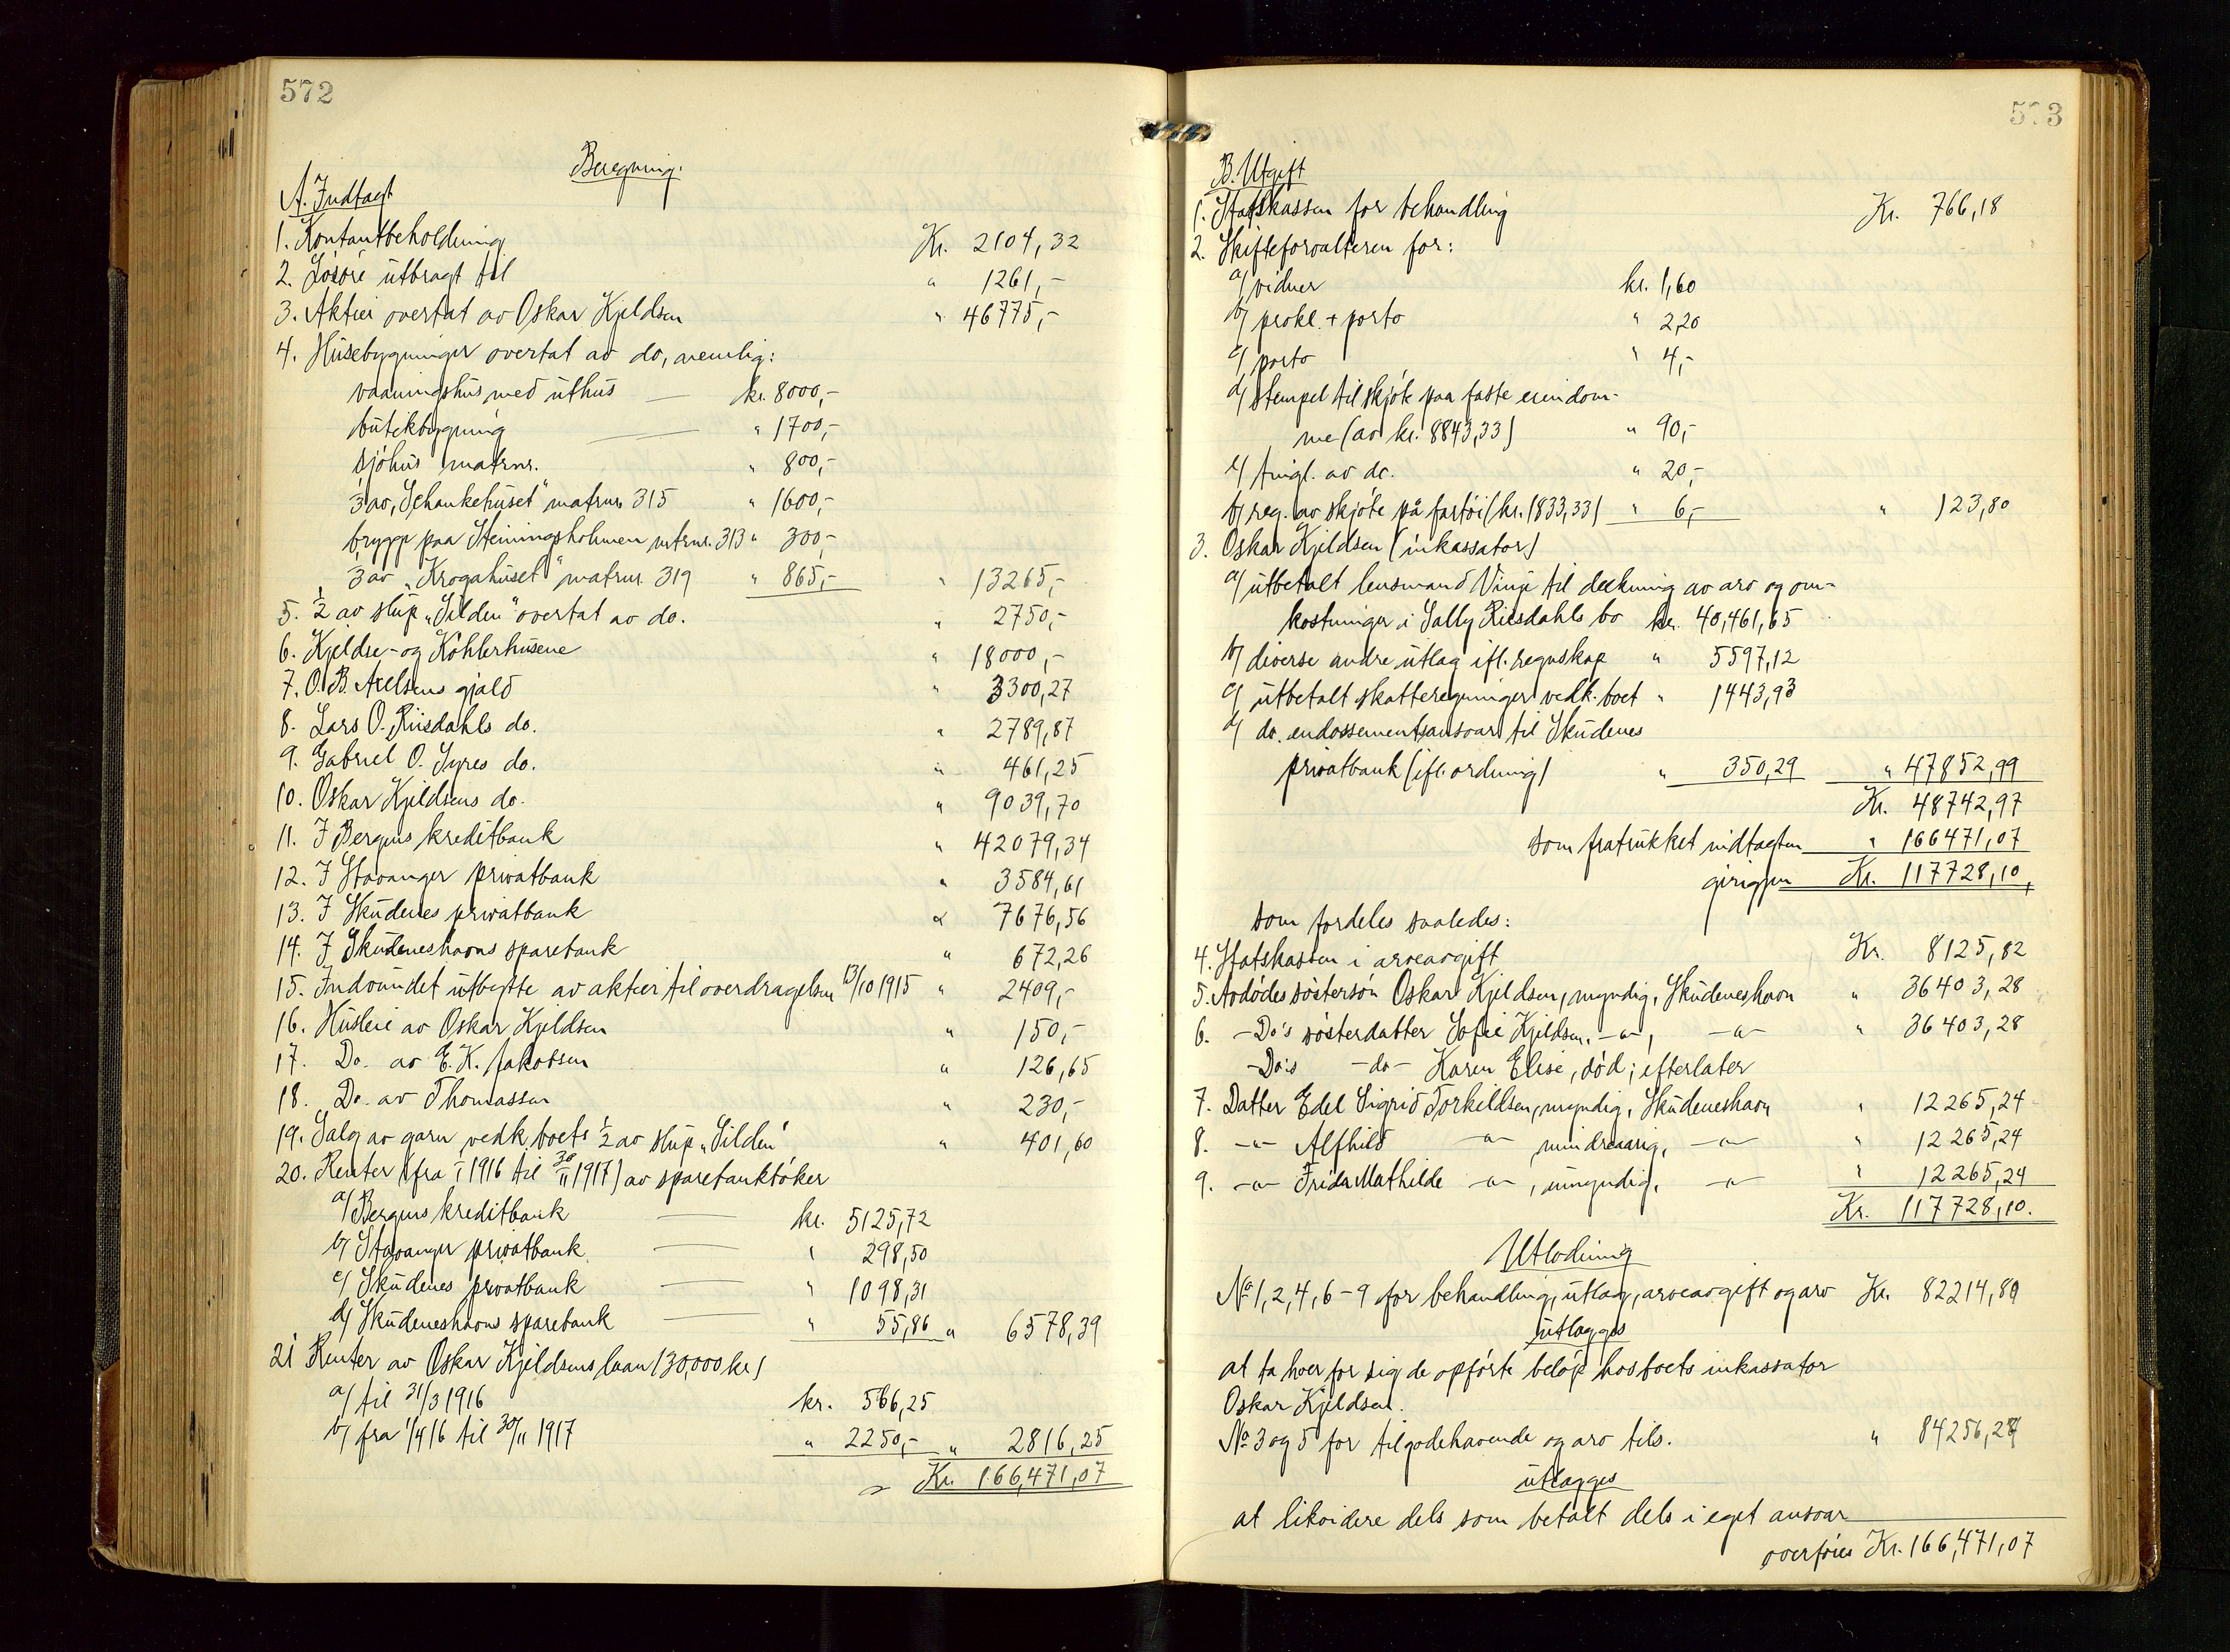 572
Beregning.
A. Indtægt
1. Kontantbeholdning Kr. 2104,32
2. Lösöre utbragt til " 1261,-
3. Aktier overtat av Oskar Kjeldsen " 46775,-
4. Husebygninger overtat av do, nemlig:
vaaningshus med uthus — kr. 8000,-
butikbygning — " 1700,-
sjöhus matrnr. " 800,-
1/3 av "Schankehuset" matrnr. 315 " 1600,-
brygge paa Steiningsholmen mtrnr. 313 " 300,-
1/3 av "Krogahuset" matrnr. 319 " 865,- " 13265,-
5. 1/2 av slup "Silden" overtat av do. " 2750,-
6. Kjeldse- og Köhlerhusene " 18000,-
7. O. B. Axelsens gjæld " 3300,27
8. Lars O. Riisdahls do. " 2789,87
9. Gabriel O. Syres do. " 461,25
10. Oskar Kjeldsens do. " 9039,70
11. I Bergens kreditbank " 42079,34
12. I Stavanger privatbank " 3584,61
13. I Skudenes privatbank " 7676,56
14. I Skudeneshavns sparebank " 672,26
15. Indvundet utbytte av aktier til overdragelsen 13/10 1915 " 2409,-
16. Husleie av Oskar Kjeldsen " 150,-
17. Do. av E. K. Jakobsen " 126,65
18. Do. av Thomassen " 230,-
19. Salg av garn vedk. boets 1/2 av slup "Silden" " 401,60
20. Renter (fra 1/1 1916 til 30/11 1917) av sparebankböker
a/ Bergens kreditbank — kr. 5125,72
b/ Stavanger privatbank — " 298,50
c/ Skudenes privatbank — " 1098,31
d/ Skudeneshavns sparebank — " 55,86 " 6578,39
21 Renter av Oskar Kjeldsens laan (30,000 kr)
a/ til 31/3 1916 kr. 566,25
b/ fra 1/4 16 til 30/11 1917 " 2250,- " 2816,25
Kr. 166,471,07
573
B. Utgift
1. Statskassen for behandling Kr. 766,18
2. Skifteforvalteren for:
a/ vidner kr. 1,60
b/ prokl. + porto " 2,20
c/ porto " 4,-
d/ stempel til skjöte paa faste eiendom-
me (av kr. 8843,33) " 90,-
e/ tingl. av do. " 20,-
f/ reg. av skjöte på fartöi (kr. 1833,33) " 6,- " 123,80
3. Oskar Kjeldsen (inkassator)
a/ utbetalt lensmand Vinje til dækning av arv og om-
kostninger i Sally Riisdahls bo kr. 40,461,65
b/ diverse andre utlæg ifl. regnskap " 5597,12
c/ utbetalt skatteregninger vedk. boet " 1443,93
d/ do. endossementsansvar til Skudenes
privatbank (ifl. ordning) " 350,29 " 47852,99
Kr. 48742,97
som fratrukket indtægten " 166471,07
gir igjen Kr. 117728,10,
som fordeles saaledes:
4. Statskassen i arveavgift Kr. 8125,82
5. Avdödes söstersön Oskar Kjeldsen, myndig, Skudeneshavn " 36403,28
6. -Do's sösterdatter Sofie Kjeldsen, -"-, -"- " 36403,28
-Do's -do- Karen Elise, död; efterlater
7. Datter Edel Sigrid Torkildsen, myndig, Skudeneshavn " 12265,24
8. -"- Alfhild -"- mindreaarig, -"- " 12265,24
9. -"- Frida Mathilde -"-, umyndig, -"- " 12265,24
Kr. 117728,10.
Utlodning
No 1, 2, 4, 6-9 for behandling, utlæg, arveavgift og arv Kr. 82214,80
utlægges
at ta hver for sig de opförte belöp hos boets inkassator
Oskar Kjeldsen.
No 3 og 5 for tilgodehavende og arv tils. " 84256,27
utlægges
at likvidere dels som betalt dels i eget ansvar
overföies Kr. 166,471,07